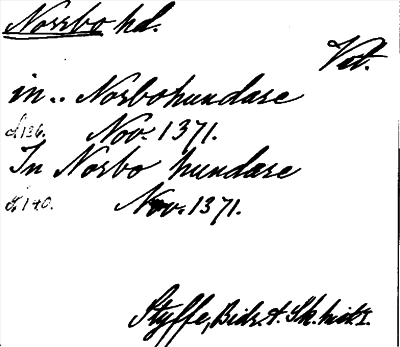 Norrbo hd.
Vst.
in .. Norbohundare
s. 136. Nov. 1371.
In Norbo hundare
s. 140. Nov. 1371.
Styffe, Bidr. t. Sk. hist. I.